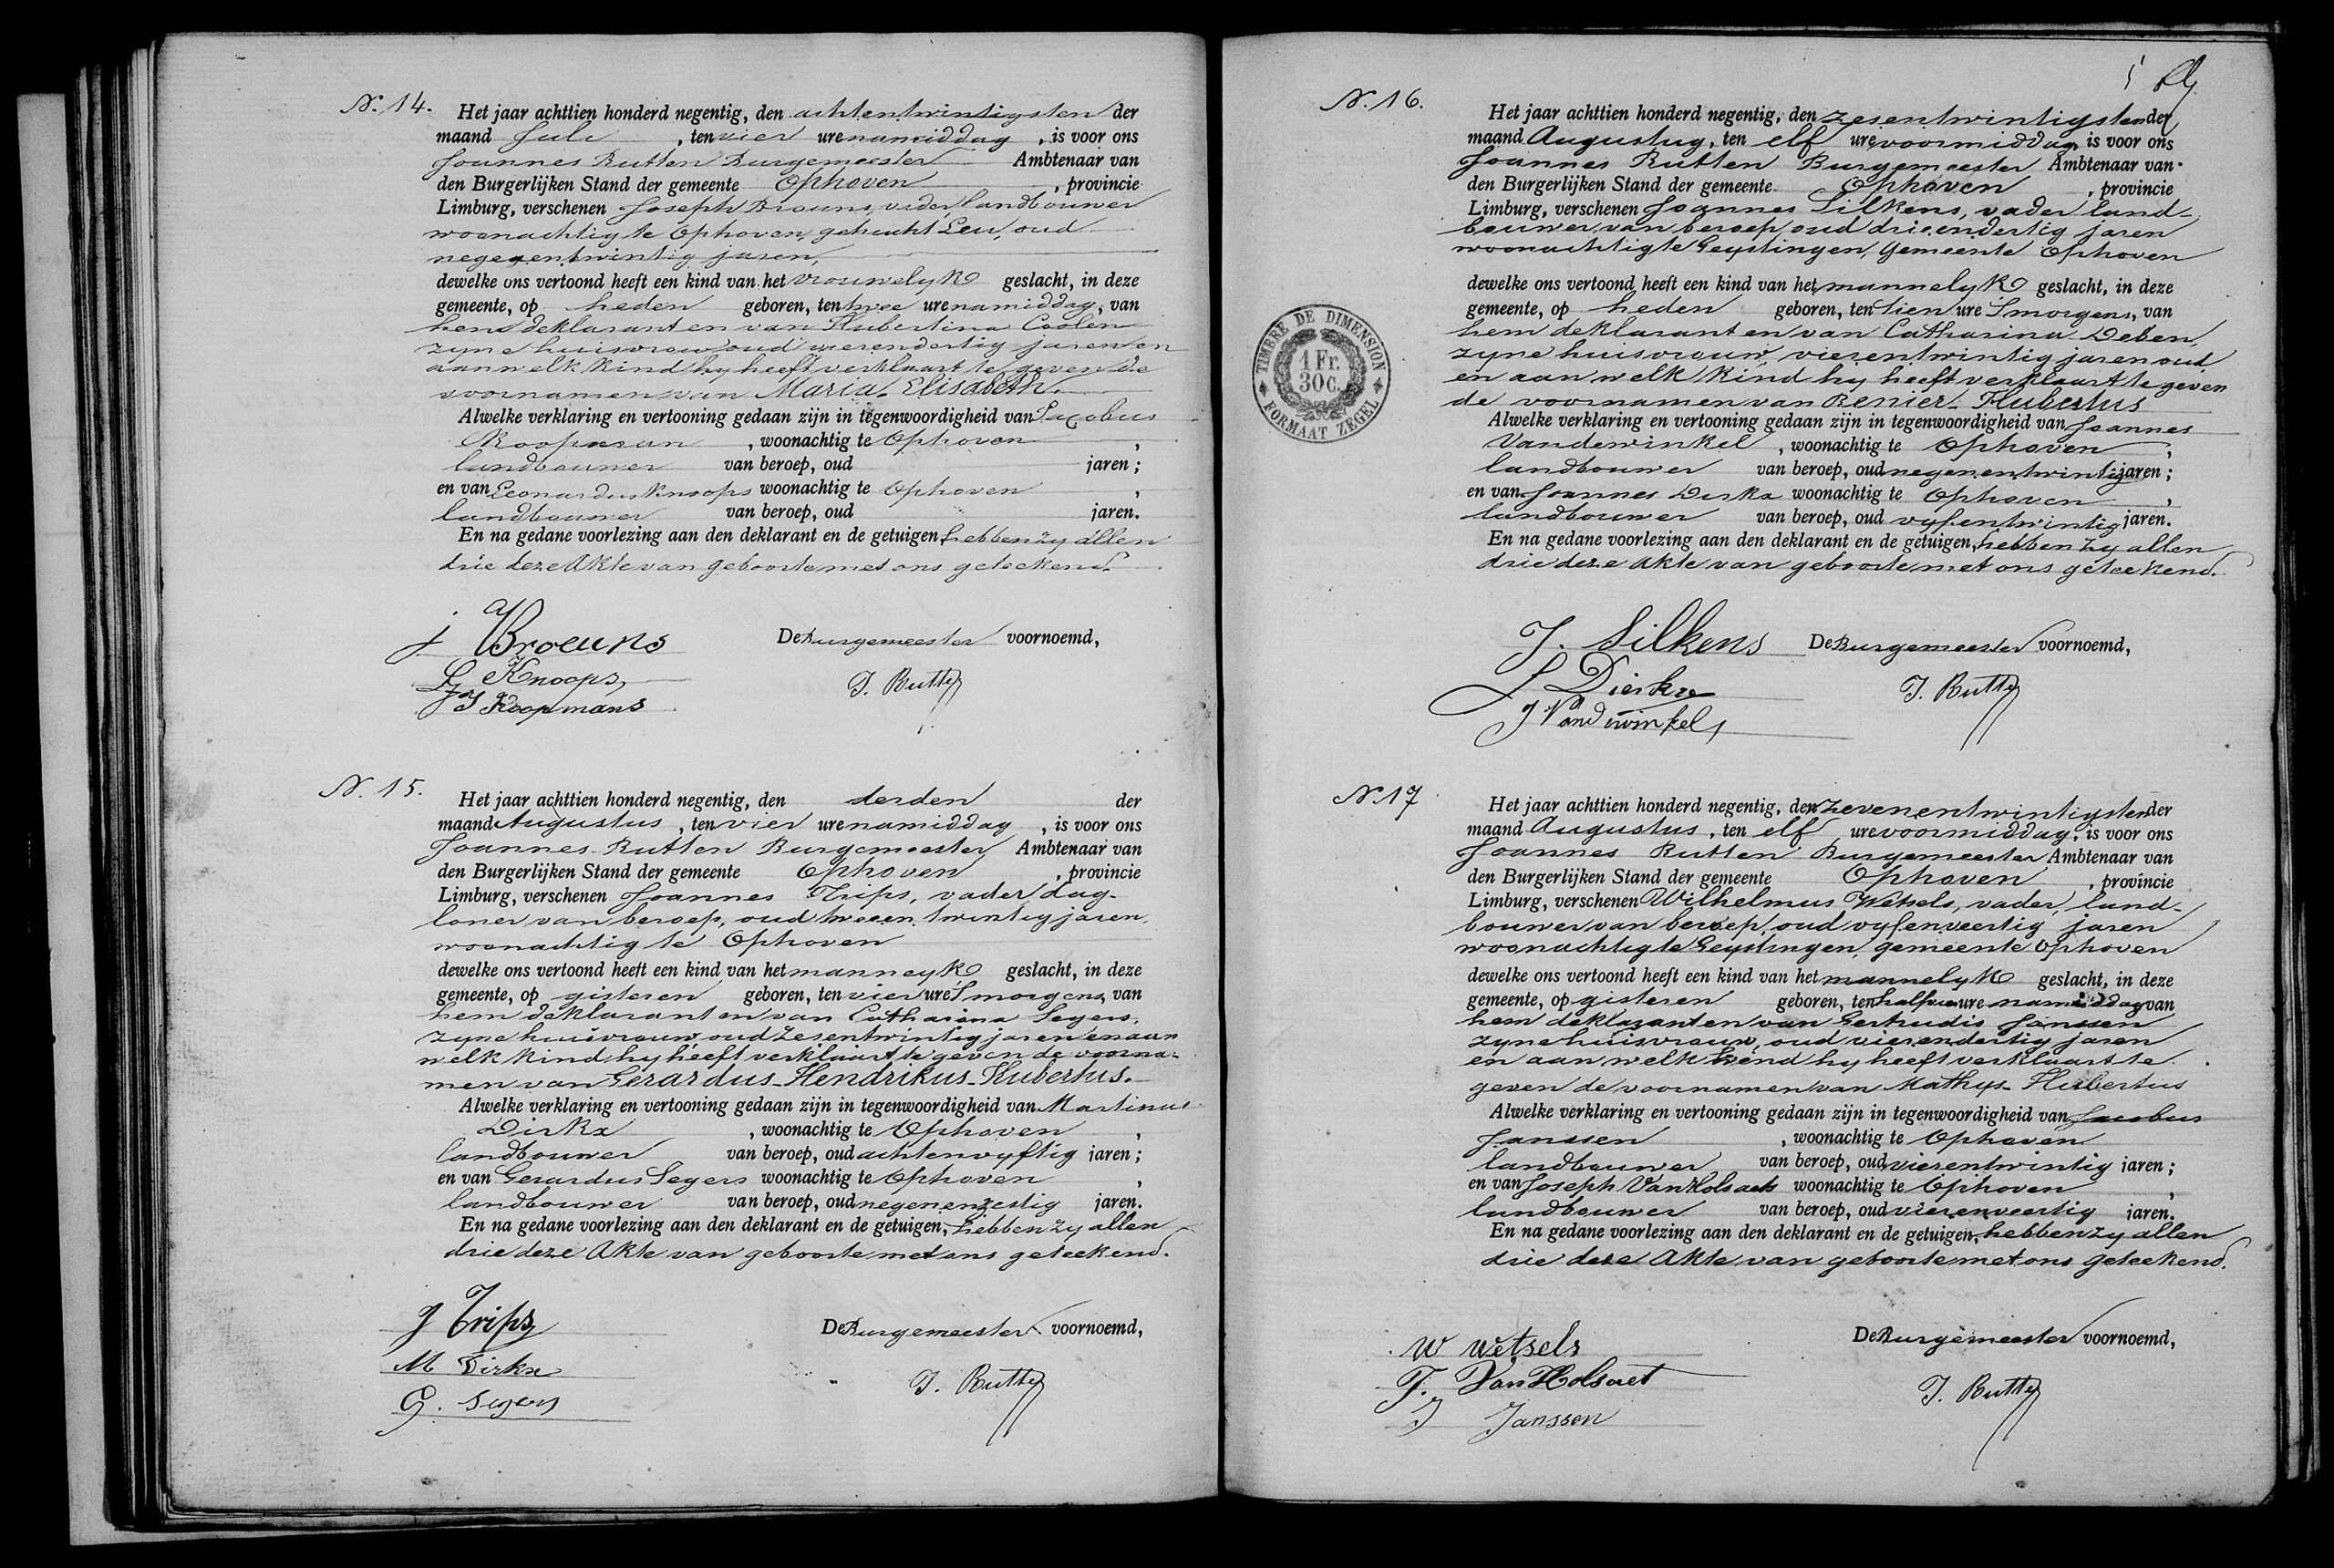 N. 14.
Het jaar achttien honderd negentig, den achtentwintigsten der
maand Juli, ten vier ure namiddag, is voor ons
Joannes Rutten Burgemeester Ambtenaar van
den Burgerlijken Stand der gemeente Ophoven, provincie
Limburg, verschenen Joseph Brouns, vader, landbouwer
woonachtig te Ophoven, gehucht Leu, oud
negegentwintig jaren,
dewelke ons vertoond heeft een kind van het vrouwelyk geslacht, in deze
gemeente, op heden geboren, ten twee ure namiddag, van
hem deklarant en van Hubertina Coolen
zyne huisvrouw oud vierendertig jaren en
aan welk kind hy heeft verklaart te geven de
voornamen van Maria. Elisabeth.
Alwelke verklaring en vertooning gedaan zijn in tegenwoordigheid van Jacobus
Koopman, woonachtig te Ophoven,
landbouwer van beroep, oud jaren;
en van Leonardus Knoops woonachtig te Ophoven,
landbouwer van beroep, oud jaren.
En na gedane voorlezing aan den deklarant en de getuigen, hebben zy allen
drie deze Akte van geboorte met ons geteekend.
J Broeuns
De Burgemeester voornoemd,
L Knoops
J. Rutten
J Koopmans
N. 15.
Het jaar achttien honderd negentig, den derden der
maand Augustus, ten vier ure namiddag, is voor ons
Joannes Rutten Burgemeester Ambtenaar van
den Burgerlijken Stand der gemeente Ophoven, provincie
Limburg, verschenen Joannes Trips, vader, dag-
loner van beroep, oud tweeen twintig jaren,
woonachtig te Ophoven
dewelke ons vertoond heeft een kind van het manneyk geslacht, in deze
gemeente, op gisteren geboren, ten vier ure Smorgens, van
hem deklarant en van Catharina Segers,
zyne huisvrouw oud zesentwintig jaren en aan
welk kind hy heeft verklaart te geven de voorna-
men van Gerardus-Hendrikus-Hubertus.
Alwelke verklaring en vertooning gedaan zijn in tegenwoordigheid van Martinus
Dirkx, woonachtig te Ophoven,
landbouwer van beroep, oud achtenvyftig jaren;
en van Gerardus Segers woonachtig te Ophoven,
landbouwer van beroep, oud negenenzestig jaren.
En na gedane voorlezing aan den deklarant en de getuigen, hebben zy allen
drie deze Akte van geboorte met ons geteekend.
J Trips
De Burgemeester voornoemd,
M Dirkx
J. Rutten
G. Segers
5
N. 16.
Het jaar achttien honderd negentig, den zesentwintigsten der
maand Augustus, ten elf ure voormiddag, is voor ons
Joannes Rutten Burgemeester Ambtenaar van
den Burgerlijken Stand der gemeente Ophoven, provincie
Limburg, verschenen Joannes Silkens, vader land-
bouwer van beroep, oud drieendertig jaren
woonachtig te Geystingen, Gemeente Ophoven
dewelke ons vertoond heeft een kind van het mannelyk geslacht, in deze
gemeente, op heden geboren, ten tien ure Smorgens, van
hem deklarant en van Catharina Deben,
zyne huisvrouw, vierentwintig jaren oud
en aan welk kind hy heeft verklaart te geven
de voornamen van Renier-Hubertus
Alwelke verklaring en vertooning gedaan zijn in tegenwoordigheid van Joannes
Vandewinkel, woonachtig te Ophoven,
landbouwer van beroep, oud negenentwintig jaren;
en van Joannes Dirkx woonachtig te Ophoven,
landbouwer van beroep, oud vyfentwintig jaren.
En na gedane voorlezing aan den deklarant en de getuigen, hebben zy allen
drie deze Akte van geboorte met ons geteekend.
TIMBRE DE DIMENSION
1 Fr.
30 c.
FORMAAT ZEGEL
J. Silkens
De Burgemeester voornoemd,
J Dierkx
J. Rutten
J Vandwinkel
N. 17
Het jaar achttien honderd negentig, den zevenentwintigsten der
maand Augustus, ten elf ure voormiddag, is voor ons
Joannes Rutten Burgemeester Ambtenaar van
den Burgerlijken Stand der gemeente Ophoven, provincie
Limburg, verschenen Wilhelmus Wetsels, vader, land-
bouwer van beroep oud vyfenveertig jaren
woonachtig te Geystingen, gemeente Ophoven
dewelke ons vertoond heeft een kind van het mannelyk geslacht, in deze
gemeente, op gisteren geboren, ten half ure namiddag van
hem deklarant en van Gertrudis Janssen
zyne huisvrouw, oud vierendertig jaren
en aan welk kind hy heeft verklaart te
geven de voornamen van Mathys-Hubertus
Alwelke verklaring en vertooning gedaan zijn in tegenwoordigheid van Jacobus
Janssen, woonachtig te Ophoven
landbouwer van beroep, oud vierentwintig jaren;
en van Joseph Van Holsaet woonachtig te Ophoven,
landbouwer van beroep, oud vierenveertig jaren.
En na gedane voorlezing aan den deklarant en de getuigen, hebben zy allen
drie deze Akte van geboorte met ons geteekend.
W Wetsels
De Burgemeester voornoemd,
J. Van Holsaet
J. Rutten
J Janssen